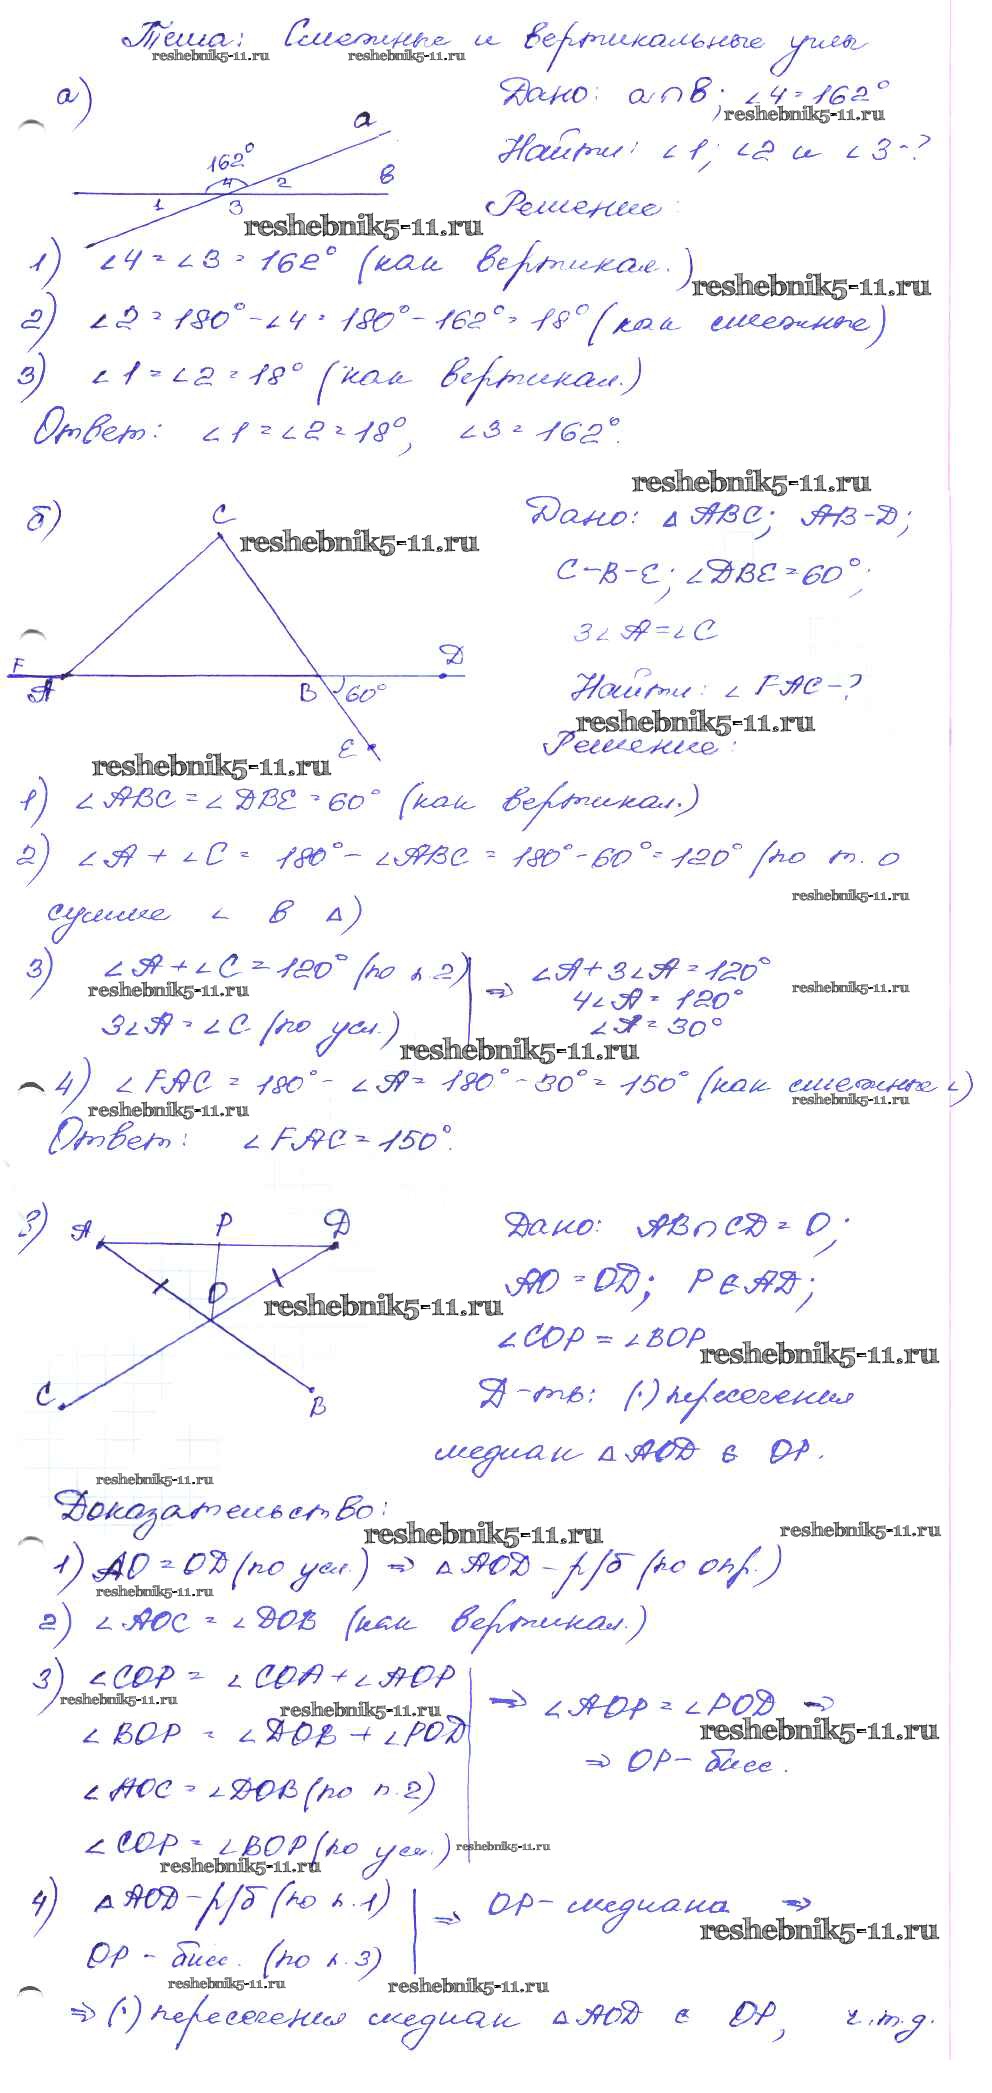 Тема: Смежные и вертикальные углы
reshebnik5-11.ru reshebnik5-11.ru
а)
Дано: a∩b; ∠4=162°
reshebnik5-11.ru
Найти: ∠1; ∠2 и ∠3-?
a
162°
4 2 b
1 3
reshebnik5-11.ru
Решение:
1) ∠4=∠3=162° (как вертикал.)
reshebnik5-11.ru
2) ∠2=180°-∠4=180°-162°=18° (как смежные)
3) ∠1=∠2=18° (как вертикал.)
Ответ: ∠1=∠2=18°, ∠3=162°.
reshebnik5-11.ru
б)
C
reshebnik5-11.ru
Дано: △ABC; AB-D;
C-B-E; ∠DBE=60°;
3∠A=∠C
F A B 60° D
E
Найти: ∠FAC-?
reshebnik5-11.ru
Решение:
reshebnik5-11.ru
1) ∠ABC=∠DBE=60° (как вертикал.)
2) ∠A+∠C= 180°-∠ABC=180°-60°=120° (по т. о
reshebnik5-11.ru
сумме ∠ в △)
3) ∠A+∠C=120° (по п.2) ⇒ ∠A+3∠A=120°
reshebnik5-11.ru reshebnik5-11.ru
4∠A=120°
3∠A=∠C (по усл.) ∠A=30°
reshebnik5-11.ru
4) ∠FAC=180°-∠A=180°-30°=150° (как смежные ∠)
reshebnik5-11.ru reshebnik5-11.ru
Ответ: ∠FAC=150°.
3)
A P D
O
C B
reshebnik5-11.ru
Дано: AB∩CD=O;
AO=OD; P∈AD;
∠COP=∠BOP
reshebnik5-11.ru
Д-ть: (·) пересечения
медиан △AOD ∈ OP.
reshebnik5-11.ru
Доказательство:
reshebnik5-11.ru reshebnik5-11.ru
1) AO=OD (по усл.) ⇒ △AOD-р/б (по опр.)
reshebnik5-11.ru
2) ∠AOC=∠DOB (как вертикал.)
3) ∠COP= ∠COA+∠AOP
reshebnik5-11.ru reshebnik5-11.ru
∠BOP = ∠DOB+∠POD
∠AOC=∠DOB (по п.2)
∠COP=∠BOP (по усл.)
reshebnik5-11.ru reshebnik5-11.ru
⇒ ∠AOP=∠POD ⇒
reshebnik5-11.ru
⇒ OP-бисс.
4) △AOD-р/б (по п.1) ⇒ OP-медиана ⇒
reshebnik5-11.ru
OP-бисс. (по п.3)
reshebnik5-11.ru reshebnik5-11.ru
⇒ (·) пересечения медиан △AOD ∈ OP, ч.т.д.